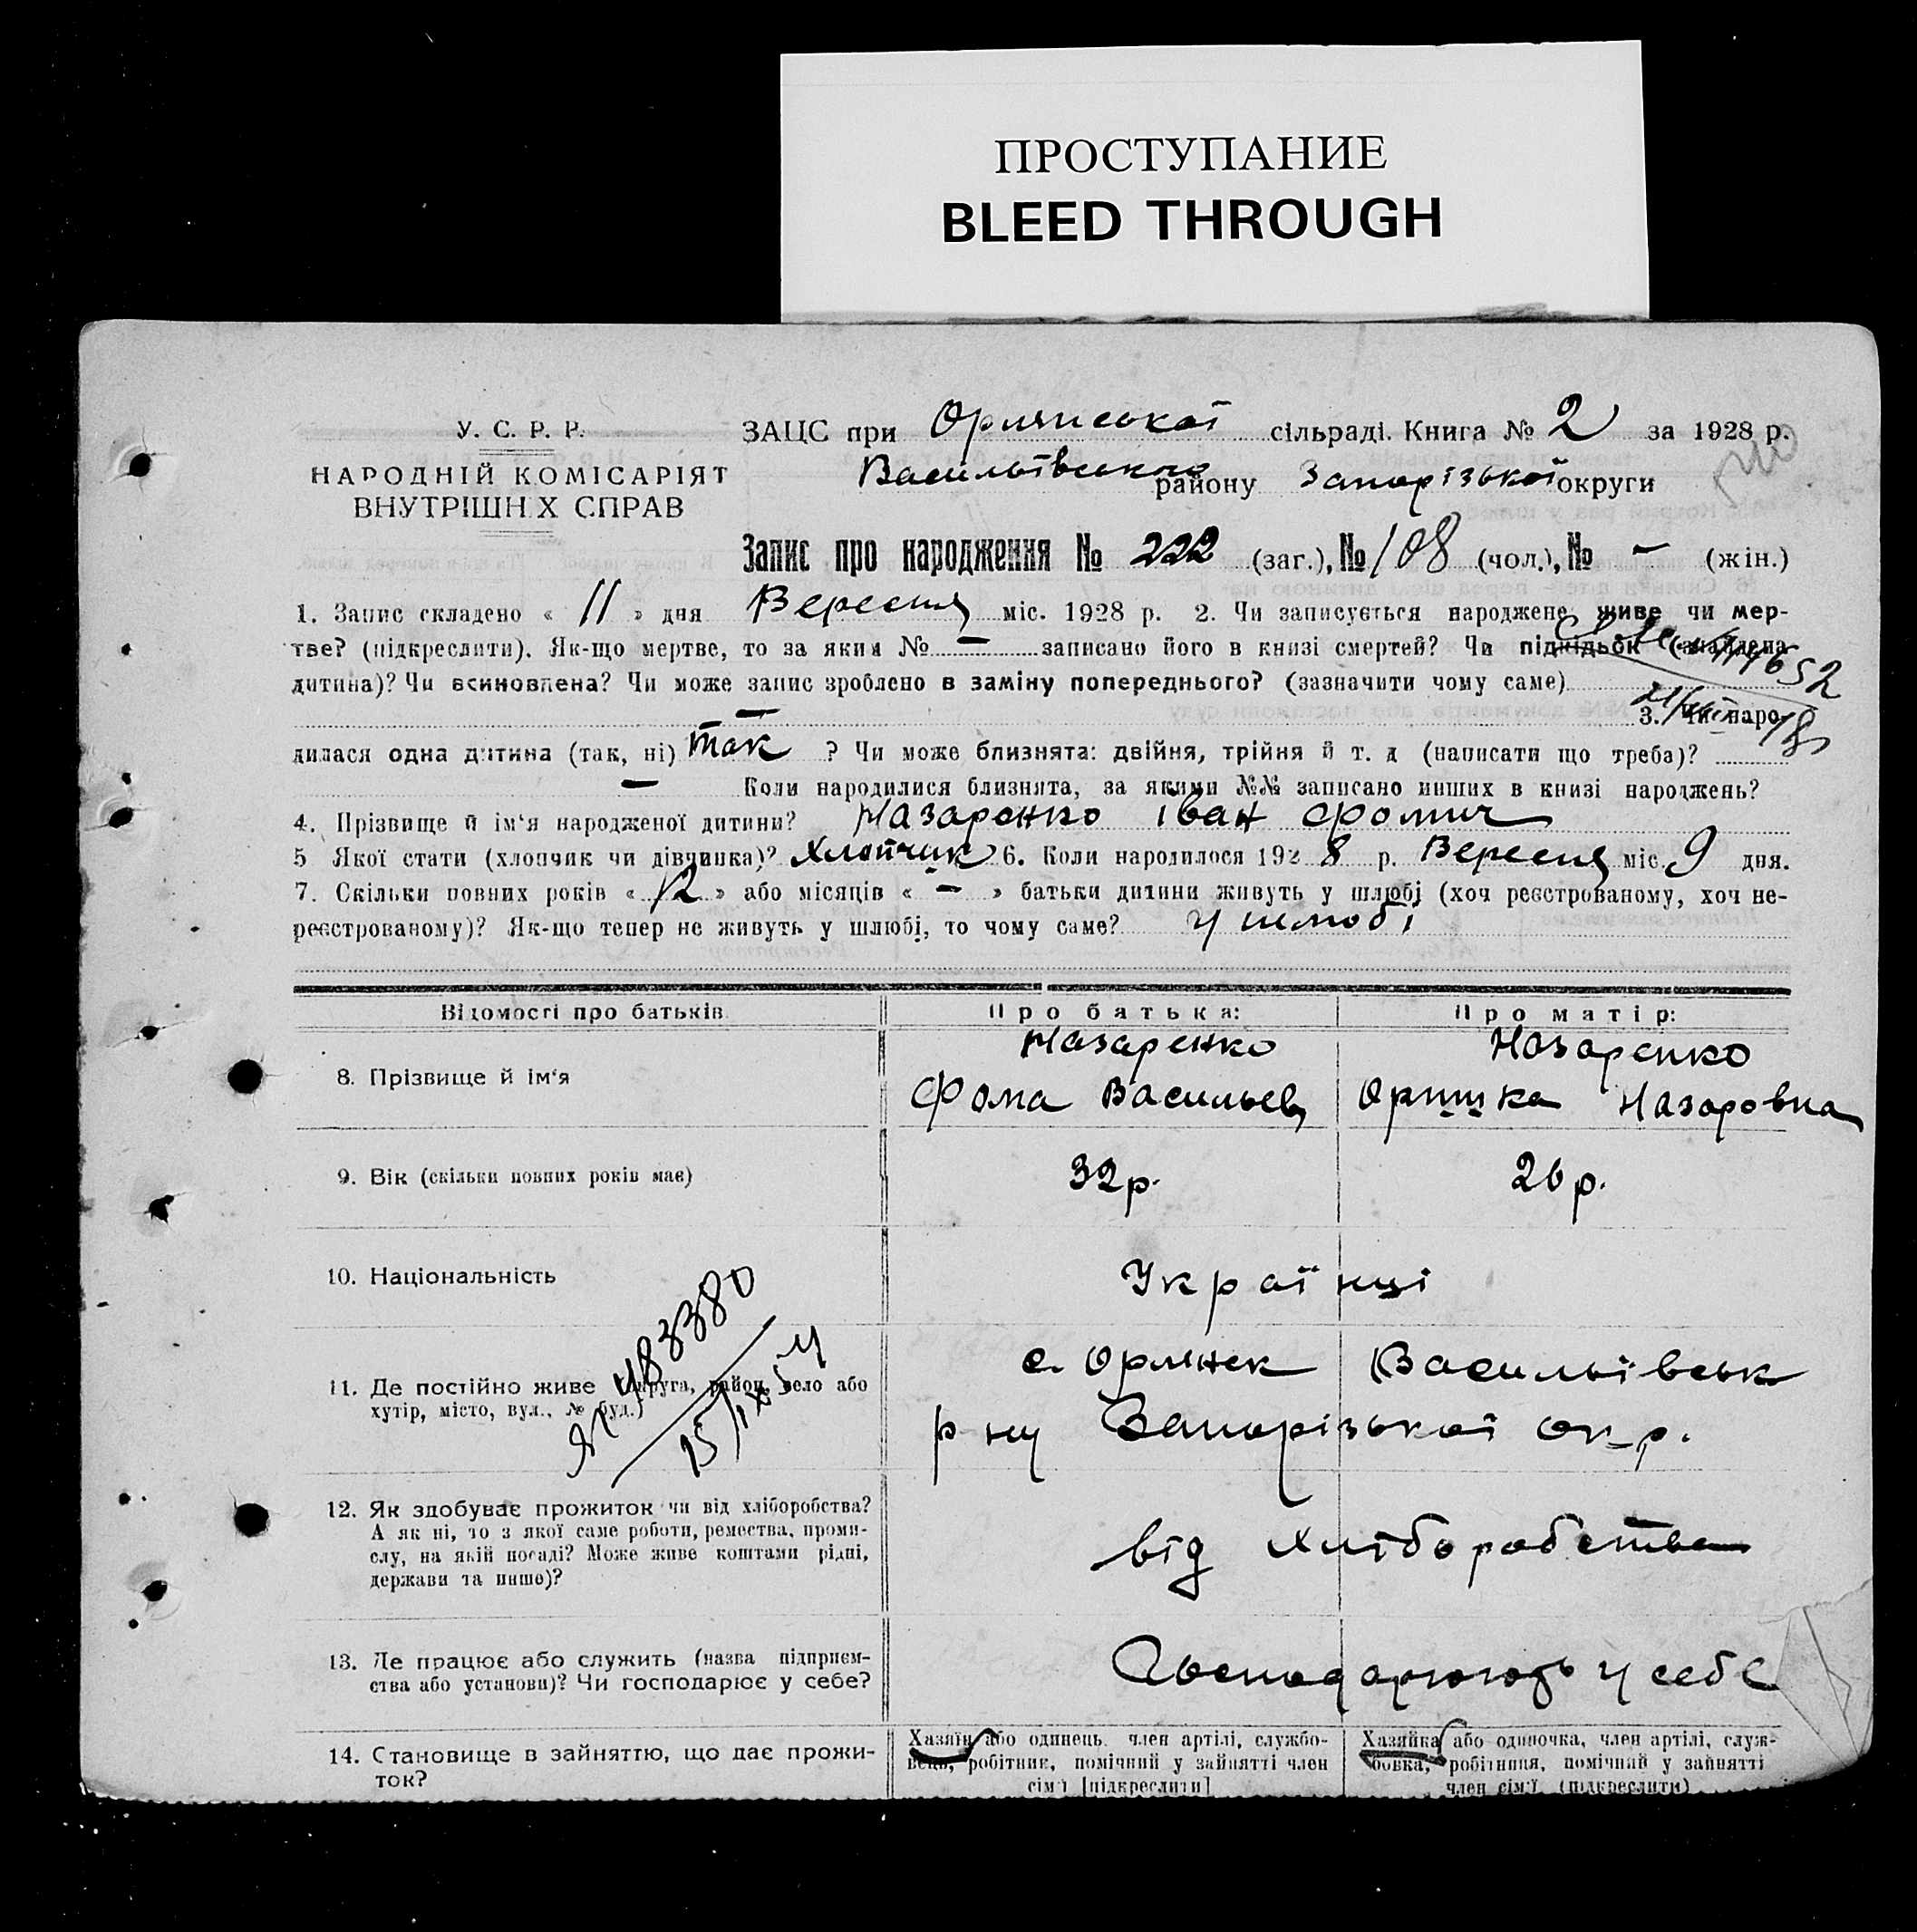 ПРОСТУПАНИЕ
BLEED THROUGH
У. С. Р. Р.
НАРОДНІЙ КОМІСАРІЯТ
ВНУТРІШНІХ СПРАВ
ЗАЦС при Орлянської сільраді. Книга № 2 за 1928 р.
Васильївського району Запорізької округи
Запис про народження № 222 (заг.), № 108 (чол.), № – (жін.)
1. Запис складено « 11 » дня Вересня міс. 1928 р. 2. Чи записується народжене живе чи мер-
тве? (підкреслити). Як-що мертве, то за яким № – записано його в книзі смертей? Чи підкідьок (знайдена
дитина)? Чи всиновлена? Чи може запис зроблено в заміну попереднього? (зазначити чому саме)
– 3. Чи наро-
дилася одна дитина (так, ні) так ? Чи може близнята: двійня, трійня й т. д (написати що треба)?
– Коли народилися близнята, за якими №№ записано инших в книзі народжень?
4. Прізвище й ім'я народженої дитини? Назаренко Іван Фомич
5 Якої стати (хлопчик чи дівчинка)? Хлопчик 6. Коли народилося 1928 р. Вересня міс. 9 дня.
7. Скільки повних років « 12 » або місяців « – » батьки дитини живуть у шлюбі (хоч реєстрованому, хоч не-
реєстрованому)? Як-що тепер не живуть у шлюбі, то чому саме? у шлюбі
Відомості про батьків Про батька: Про матір:
Назаренко Назаренко
8. Прізвище й ім'я Фома Васильев Оришка Назаровна
9. Вік (скільки повних років має) 32 р. 26 р.
10. Національність Українці
483380
11. Де постійно живе (округа, район, село або
хутір, місто, вул., № буд.)
с. Орлянск Васильївськ
р-ну Запорізької окр.
12. Як здобуває прожиток чи від хліборобства?
А як ні, то з якої саме роботи, ремества, проми-
слу, на якій посаді? Може живе коштами рідні,
держави та инше)?
від хліборобства
13. Де працює або служить (назва підприєм-
ства або установи)? Чи господарює у себе?
Господарюють у себе
14. Становище в зайняттю, що дає прожи-
ток?
Хазяїн або одинець член артілі, службо-
вець, робітник, помічний у зайнятті член
сім'ї [підкреслити]
Хазяйка або одиночка, член артілі, служ-
бовка, робітниця, помічний у зайнятті
член сім'ї (підкреслити)